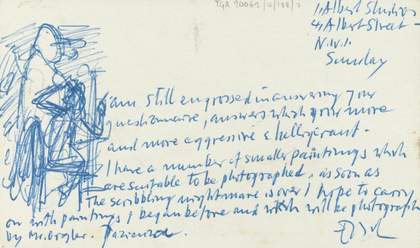 TGA 20062/4/188/2
1 Albert Studios
Albert Street
N.W.1.
Sunday
I am still engrossed in answering your
questionnaire, answers which grow more
and more aggressive & belligerant.
I have a number of smaller paintings which
are suitable to be photographed, as soon as
the scribbling nightmare is over I hope to carry
on with paintings I began before and which will be photographed
by Mr.